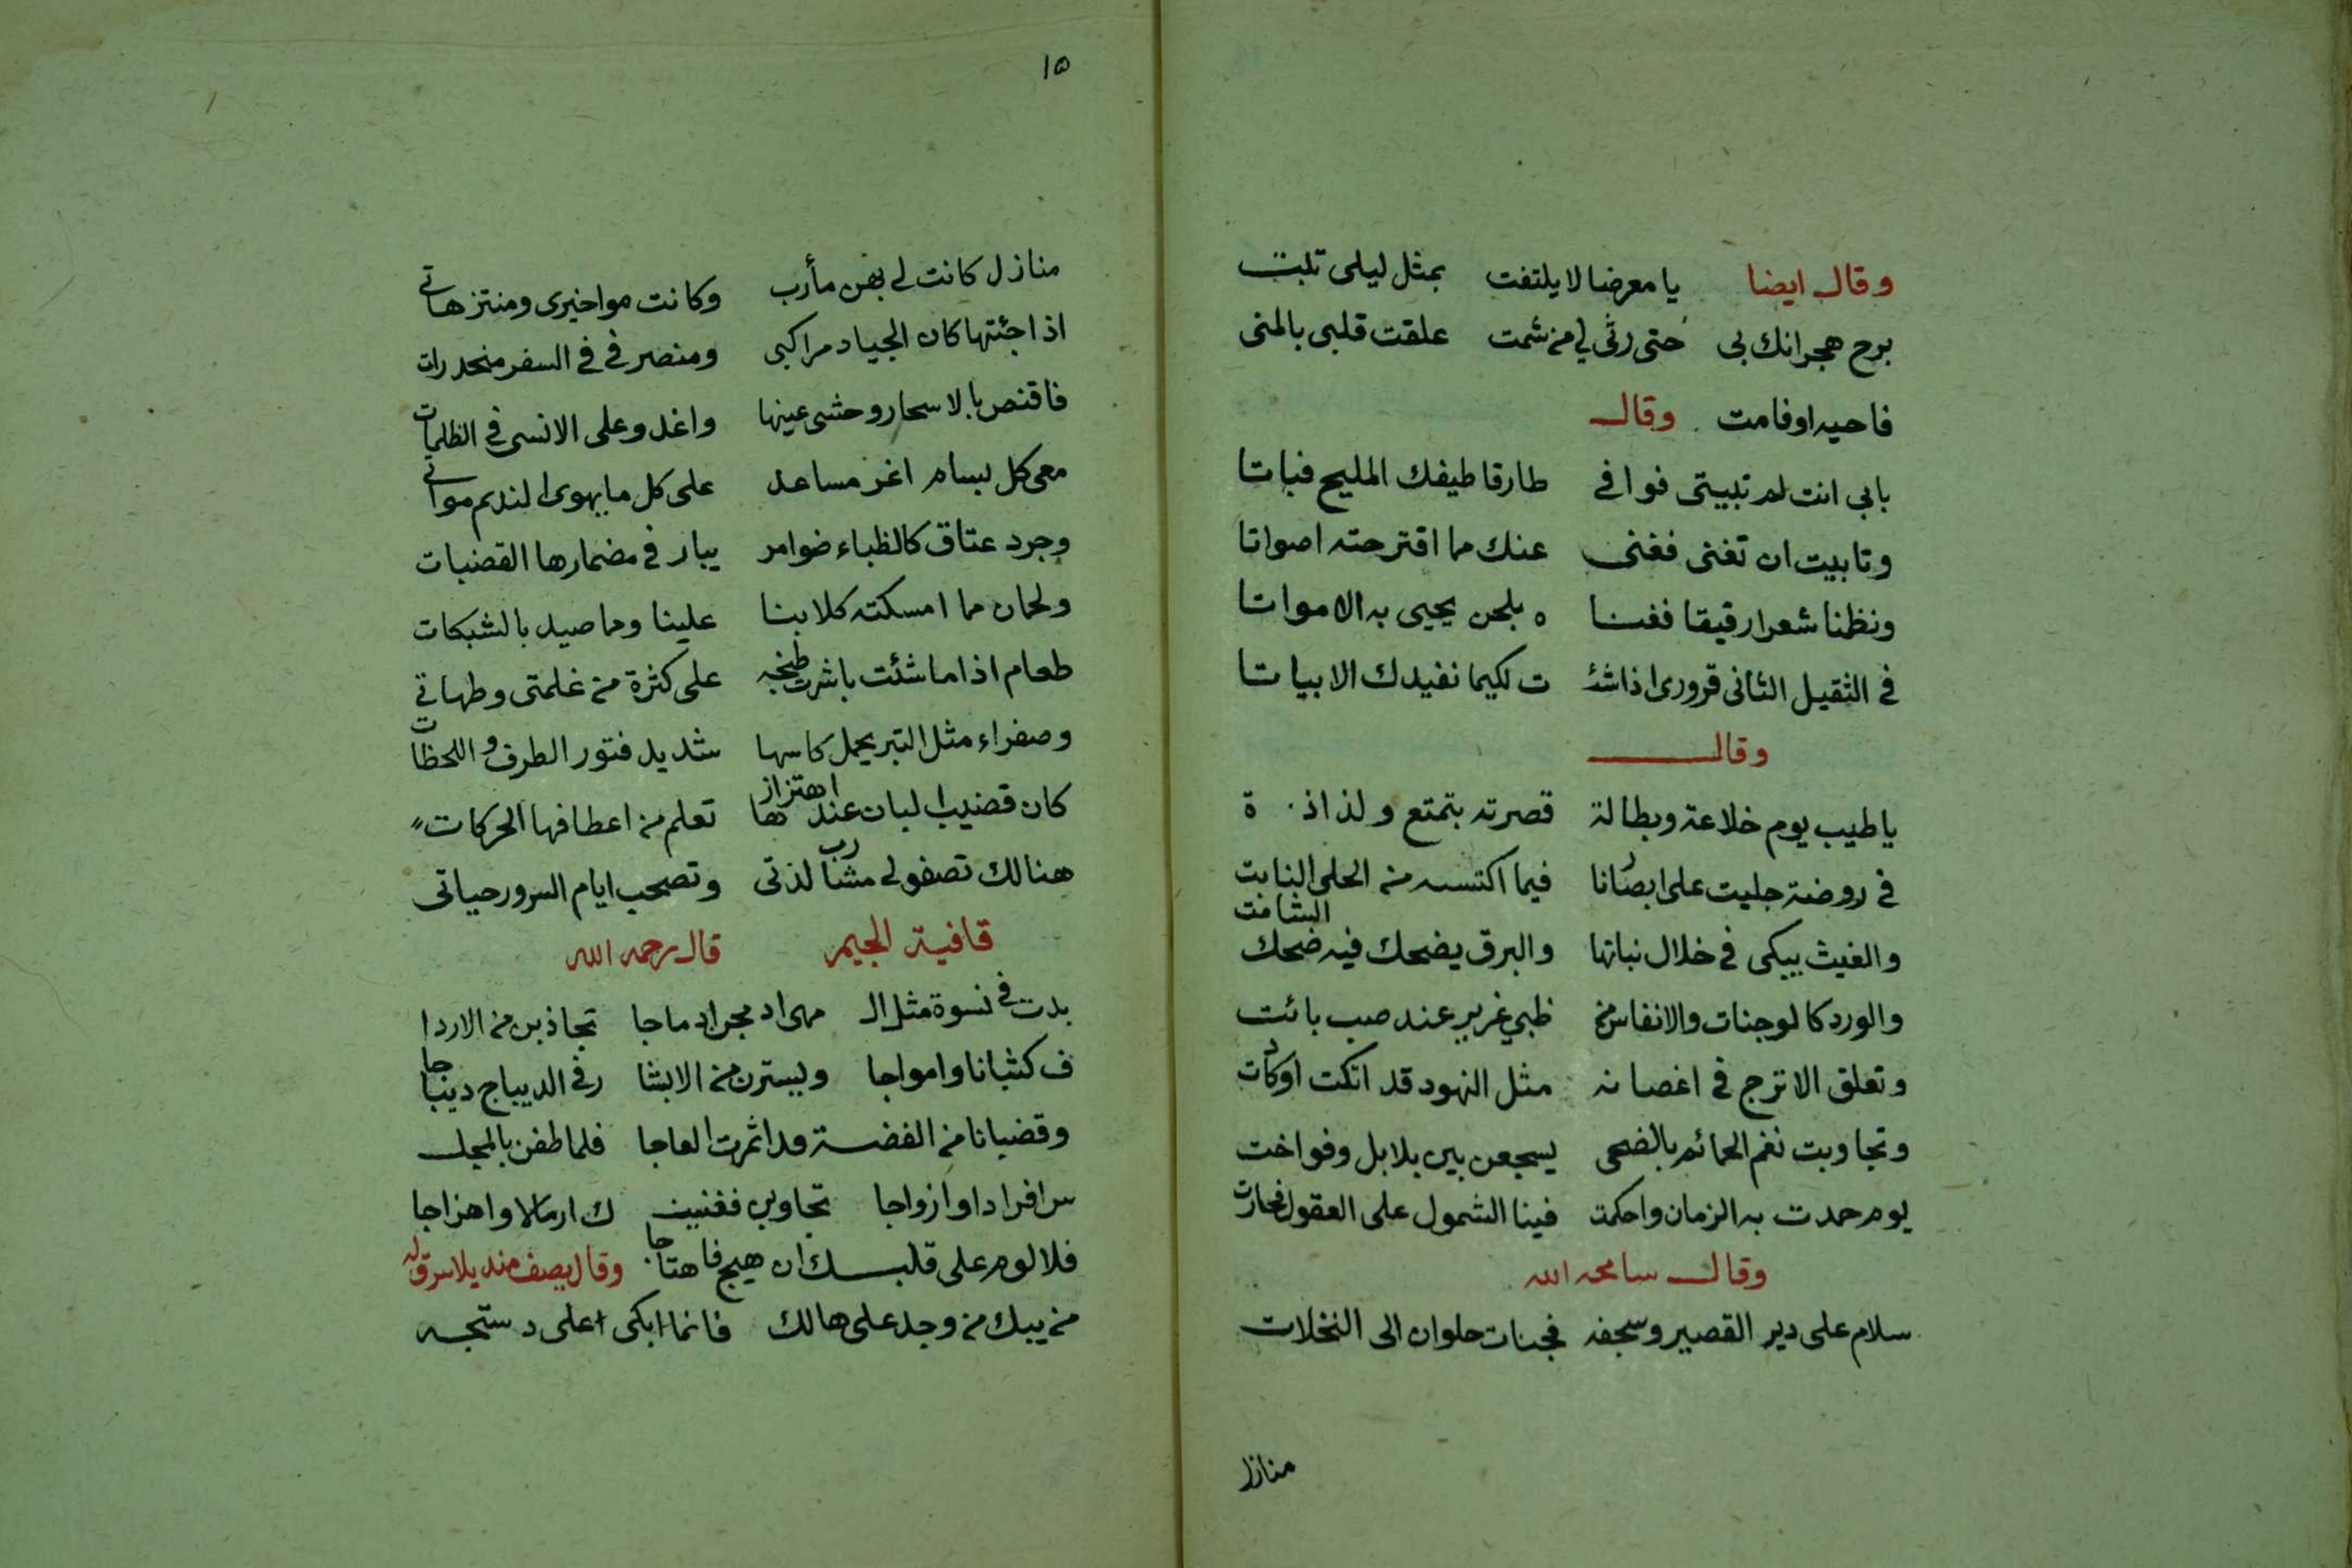 وقال ايضا يا معرضا لا يلتفت بمثل ليلى تلبت
برح هجرانك بى حتى رثى لى من شمت علقت قلبى بالمنى
فاحيه اوفامت وقال
بابى انت لم تبيتى فوافى طارقا طيفك المليح فباتا
وتابيت ان تغنى فغنى عنك مما اقترحته اصواتا
ونظمنا شعرا رقيقا فغنا ه بلحن يحيى به الامواتا
فى الثقيل الثانى قرورى اذا شئـ ت لكيما نفيدك الابياتا
وقال
يا طيب يوم خلاعة وبطالة قصرته بتمتع ولذاذ ة
فى روضة جليت على ابصارنا فيما اكتسه من الحلى النابت
والغيث يبكى فى خلال نباتها والبرق يضحك فيه ضحك الشامت
والورد كالوجنات والانفاس من ظبي غرير عند صب بائت
وتعلق الاترج فى اغصانه مثل النهود قد اتكت اوكادت
وتجاوبت نغم الحمائم بالضحى يسجعن بين بلابل وفواخت
يوم حمدت به الزمان واحكمت فينا الشمول على العقول فجارت
وقال سامحه الله
سلام على دير القصير وسجفه فجنات حلوان الى النخلات
منازل
١٥
منازل كانت لى بهن مأرب وكانت مواخيرى ومنتزهاتى
اذا جئتها كان الجياد مراكبى ومنصرفى فى السفر منحدرات
فاقنص بالاسحار وحشى عينها واغدو على الانسى فى الظلمات
معى كل بسام اغر مساعد على كل ما يهوى النديم مواتى
وجرد عتاق كالظباء ضوامر يبار فى مضمارها القضبات
ولحمان مما امسكته كلابنا علينا ومما صيد بالشبكات
طعام اذا ما شئت باشرت طبخه على كثرة من غلمتى وطهاتى
وصفراء مثل التبر يحمل كاسها شديد فتور الطرف واللحظات
كان قضيب البان عند اهتزازها تعلم من اعطافها الحركات
هنالك تصفو لى مشارب لذتى وتصحب ايام السرور حياتى
قافية الجيم قال رحمه الله
بدت فى نسوة مثل الـ مهى ادمجن ادماجا تجاذبن من الاردا
ف كثبانا وامواجا ويسترن من الابشا ر فى الديباج ديباجا
وقضبانا من الفضة قد اثمرت العاجا فلما طفن بالمجلـ
س افرادا وازواجا تجاوبن فغنينـ ك ارمالا واهزاجا
فلا لوم على قلبك ان هيج فاهتاجا وقال يصف منديلا سرق له
من يبك من وجد على هالك فانما ابكى على دستجه